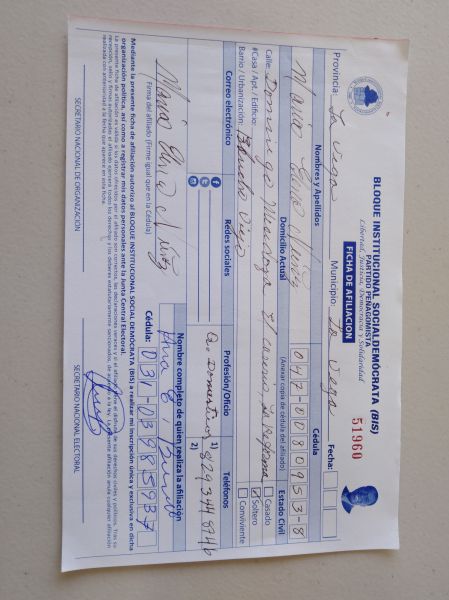 BLOQUE INSTITUCIONAL SOCIALDEMÓCRATA (BIS)
PARTIDO PEÑAGOMISTA
Libertad, Justicia, Democracia y Solidaridad
FICHA DE AFILIACIÓN
51960
Provincia: La Vega Municipio: La Vega Fecha:
Nombres y Apellidos Cédula
047-0080953-8
Domicilio Actual (Anexar copia de cédula del afiliado) Estado Civil
Calle: Domingo Mendoza El casino, La Reforma
#Casa / Apt / Edificio:
Barrio / Urbanización: Rancho Viejo
Casado
Soltero
Conviviente
Correo electrónico Redes sociales Profesión/Oficio Teléfonos
Q. Domesticos 1) 829 344 8746
2)
Firma del afiliado (Firme igual que en la Cédula)
Nombre completo de quien realiza la afiliación
Ana E.
Cédula: 031-0398593-7
Mediante la presente ficha de afiliación autorizo al BLOQUE INSTITUCIONAL SOCIALDEMÓCRATA (BIS) a realizar mi inscripción única y exclusiva en dicha
organización política, así como a registrar mis datos personales ante la Junta Central Electoral.
SECRETARIO NACIONAL DE ORGANIZACIÓN SECRETARIO NACIONAL ELECTORAL